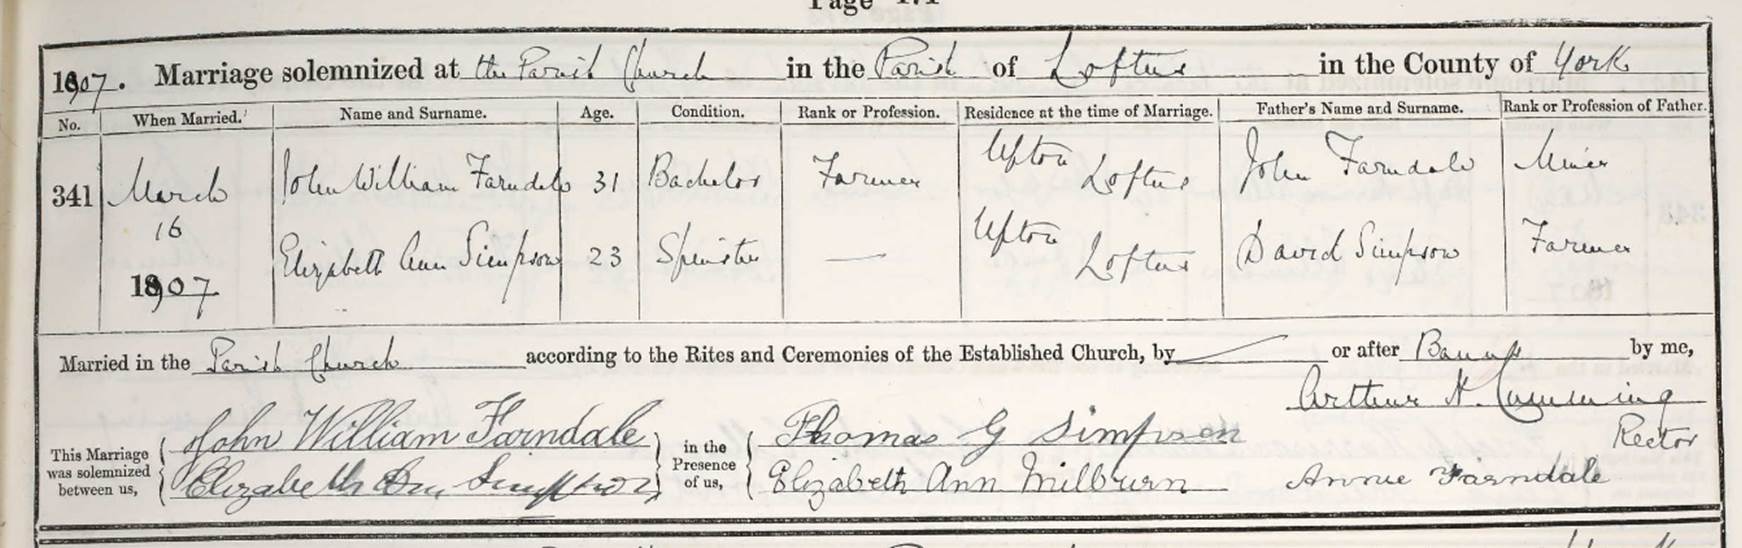 Page 171
1907. Marriage solemnized at the Parish Church in the Parish of Loftus in the County of York
No. When Married. Name and Surname. Age. Condition. Rank or Profession. Residence at the time of Marriage. Father's Name and Surname. Rank or Profession of Father.
341 March 16 1907 John William Farndale 31 Bachelor Farmer Upton Loftus John Farndale Miner
Elizabeth Ann Simpson 23 Spinster — Upton Loftus David Simpson Farmer
Married in the Parish Church according to the Rites and Ceremonies of the Established Church, by or after Banns by me,
Arthur H. Cumming
Rector
This Marriage was solemnized between us, { John William Farndale } in the Presence of us, { Thomas G Simpson
Elizabeth Ann Simpson Elizabeth Ann Milburn Annie Farndale